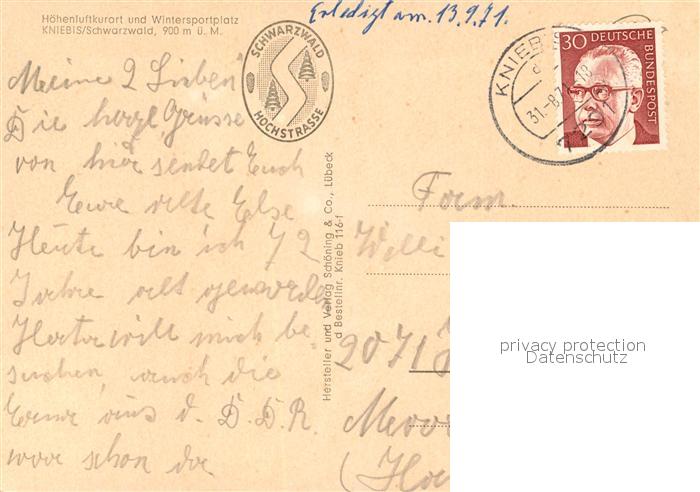 Höhenluftkurort und Wintersportplatz
KNIEBIS/Schwarzwald, 900 m ü. M.
SCHWARZWALD
HOCHSTRASSE
Erledigt am 13.9.71.
30 DEUTSCHE
BUNDESPOST
KNIEBIS
31.-8.7
Meine 2 Lieben
Die herzl. Grüsse
von hier sendet Euch
Eure alte Else
Heute bin ich 72
Jahre alt geworden
will mich be-
suchen, auch die
Erna aus d. D.D.R.
war schon da
Hersteller und Verlag Schöning & Co., Lübeck
d Bestellnr. Knieb 116-f
Fam.
Willi
2071
privacy protection
Datenschutz